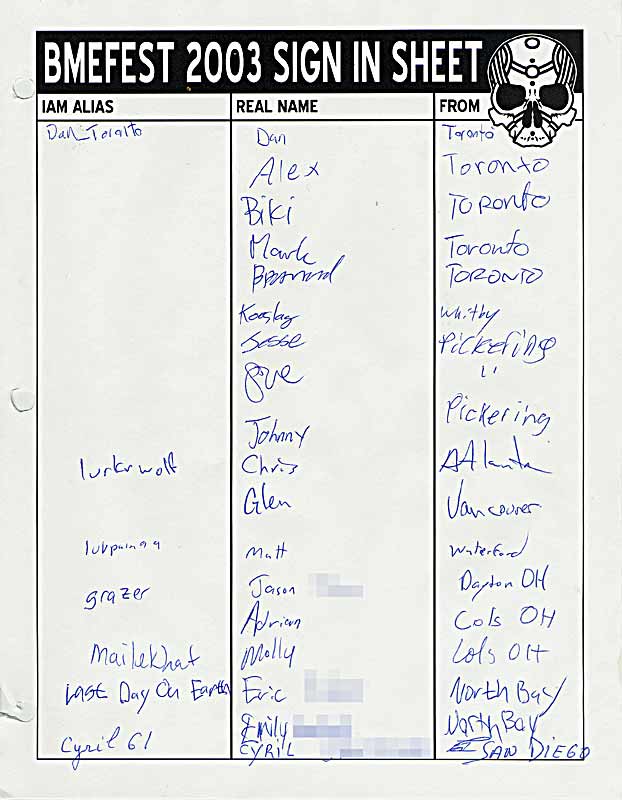 BMEFEST 2003 SIGN IN SHEET
IAM ALIAS REAL NAME FROM
Dan Toronto
Alex Toronto
Biki TORONTO
Mark Toronto
TORONTO
Whitby
Jesse Pickering
"
Johnny Pickering
lurkrwolf Chris Atlanta
Glen Vancouver
Matt Waterford
grazer Jason Dayton OH
Adrian Cols OH
Mailekhat Molly Cols OH
Last Day On Earth Eric North Bay
Emily North Bay
Cyril 61 CYRIL SAN DIEGO